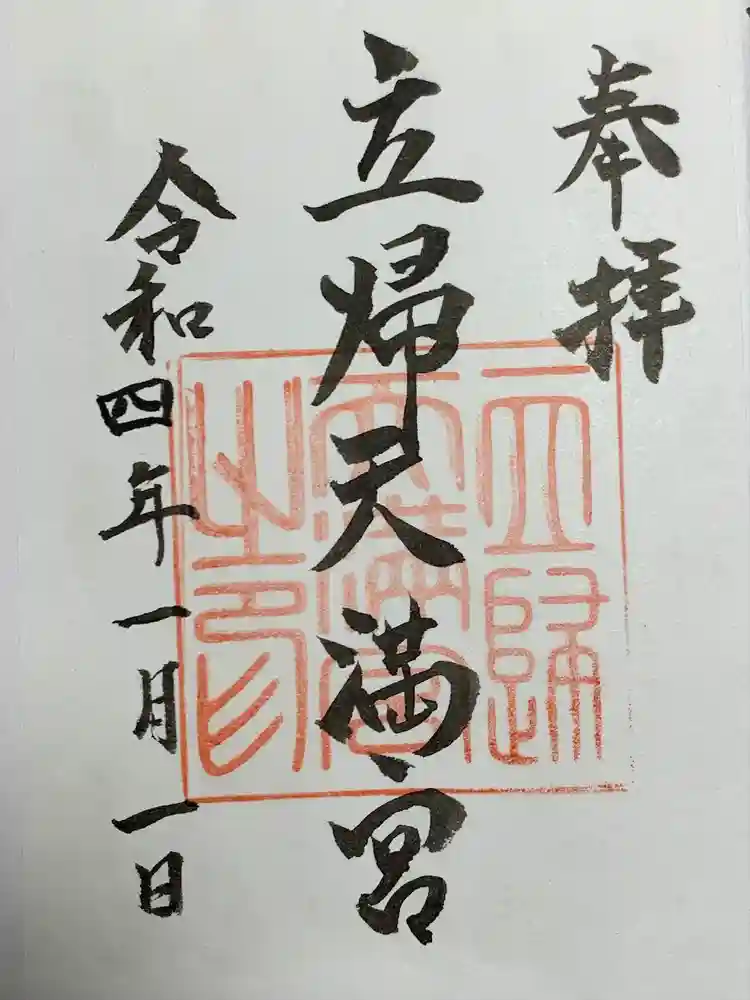 奉拝
立帰天満宮
令和四年一月一日
立帰
天満宮
之印